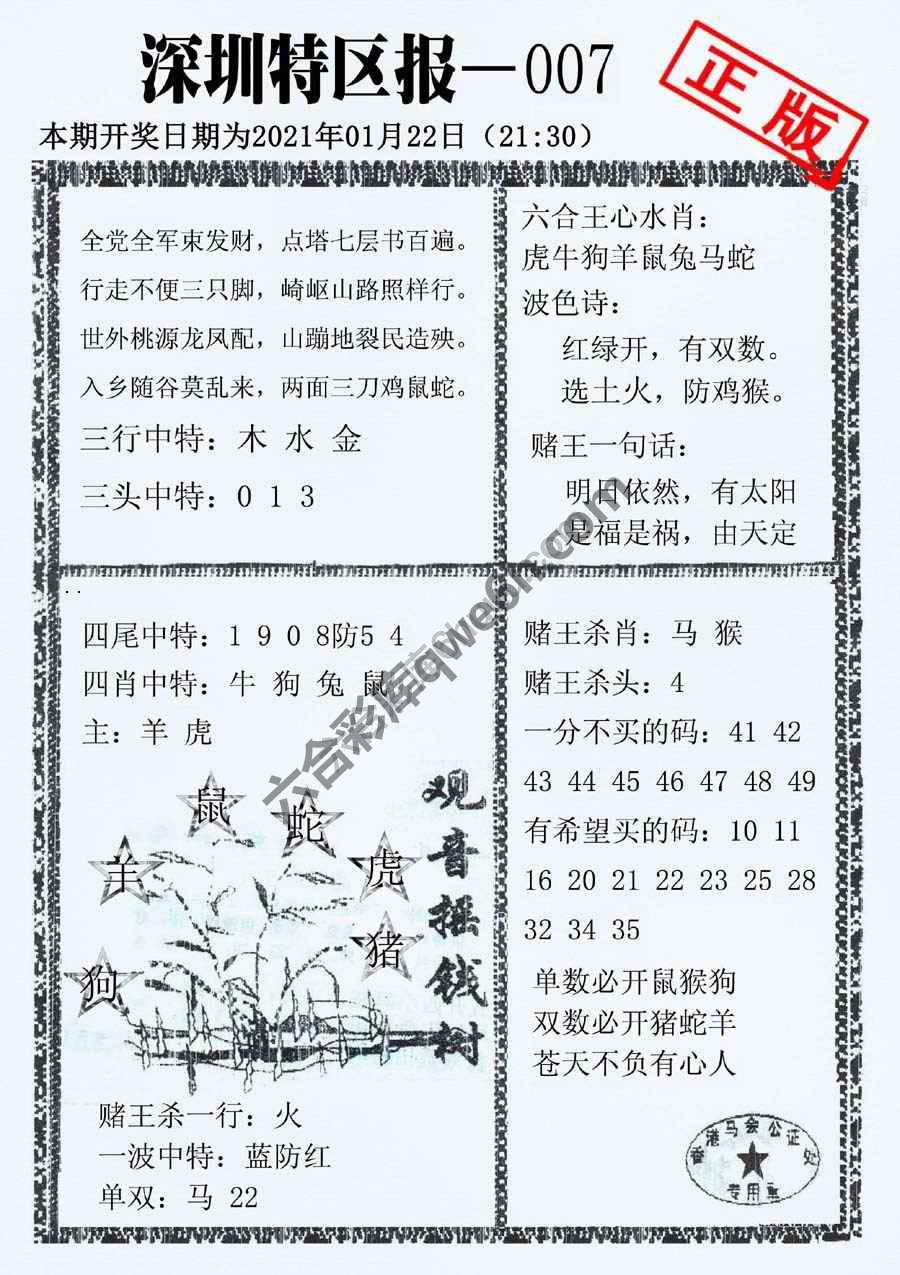 深圳特区报—007
正版
本期开奖日期为2021年01月22日（21:30）
全党全军束发财，点塔七层书百遍。
行走不便三只脚，崎岖山路照样行。
世外桃源龙凤配，山蹦地裂民造殃。
入乡随谷莫乱来，两面三刀鸡鼠蛇。
三行中特：木 水 金
三头中特：0 1 3
六合王心水肖：
虎牛狗羊鼠兔马蛇
波色诗：
红绿开，有双数。
选土火，防鸡猴。
赌王一句话：
明日依然，有太阳
是福是祸，由天定
四尾中特：1 9 0 8防5 4
四肖中特：牛 狗 兔 鼠
主：羊 虎
鼠
蛇
羊
虎
猪
狗
观音摇钱树
赌王杀一行：火
一波中特：蓝防红
单双：马 22
赌王杀肖：马 猴
赌王杀头：4
一分不买的码：41 42
43 44 45 46 47 48 49
有希望买的码：10 11
16 20 21 22 23 25 28
32 34 35
单数必开鼠猴狗
双数必开猪蛇羊
苍天不负有心人
香港马会公证处
专用章
六合彩库qwe6h.com